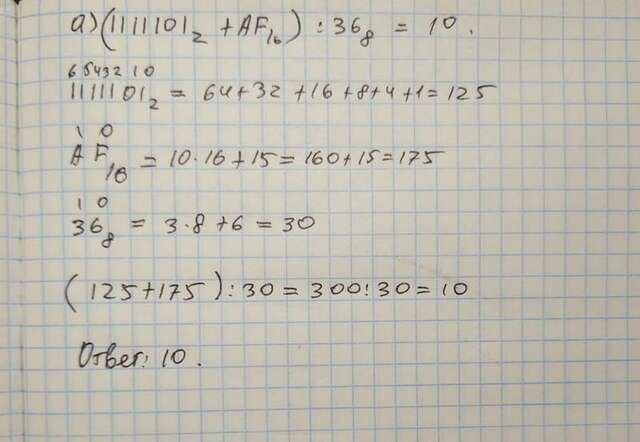 а) (1111101₂ + AF₁₆) : 36₈ = 10.
6 5 4 3 2 1 0
1111101₂ = 64+32+16+8+4+1=125
1 0
AF₁₆ = 10·16+15=160+15=175
1 0
36₈ = 3·8+6=30
(125+175):30=300:30=10
Ответ: 10.